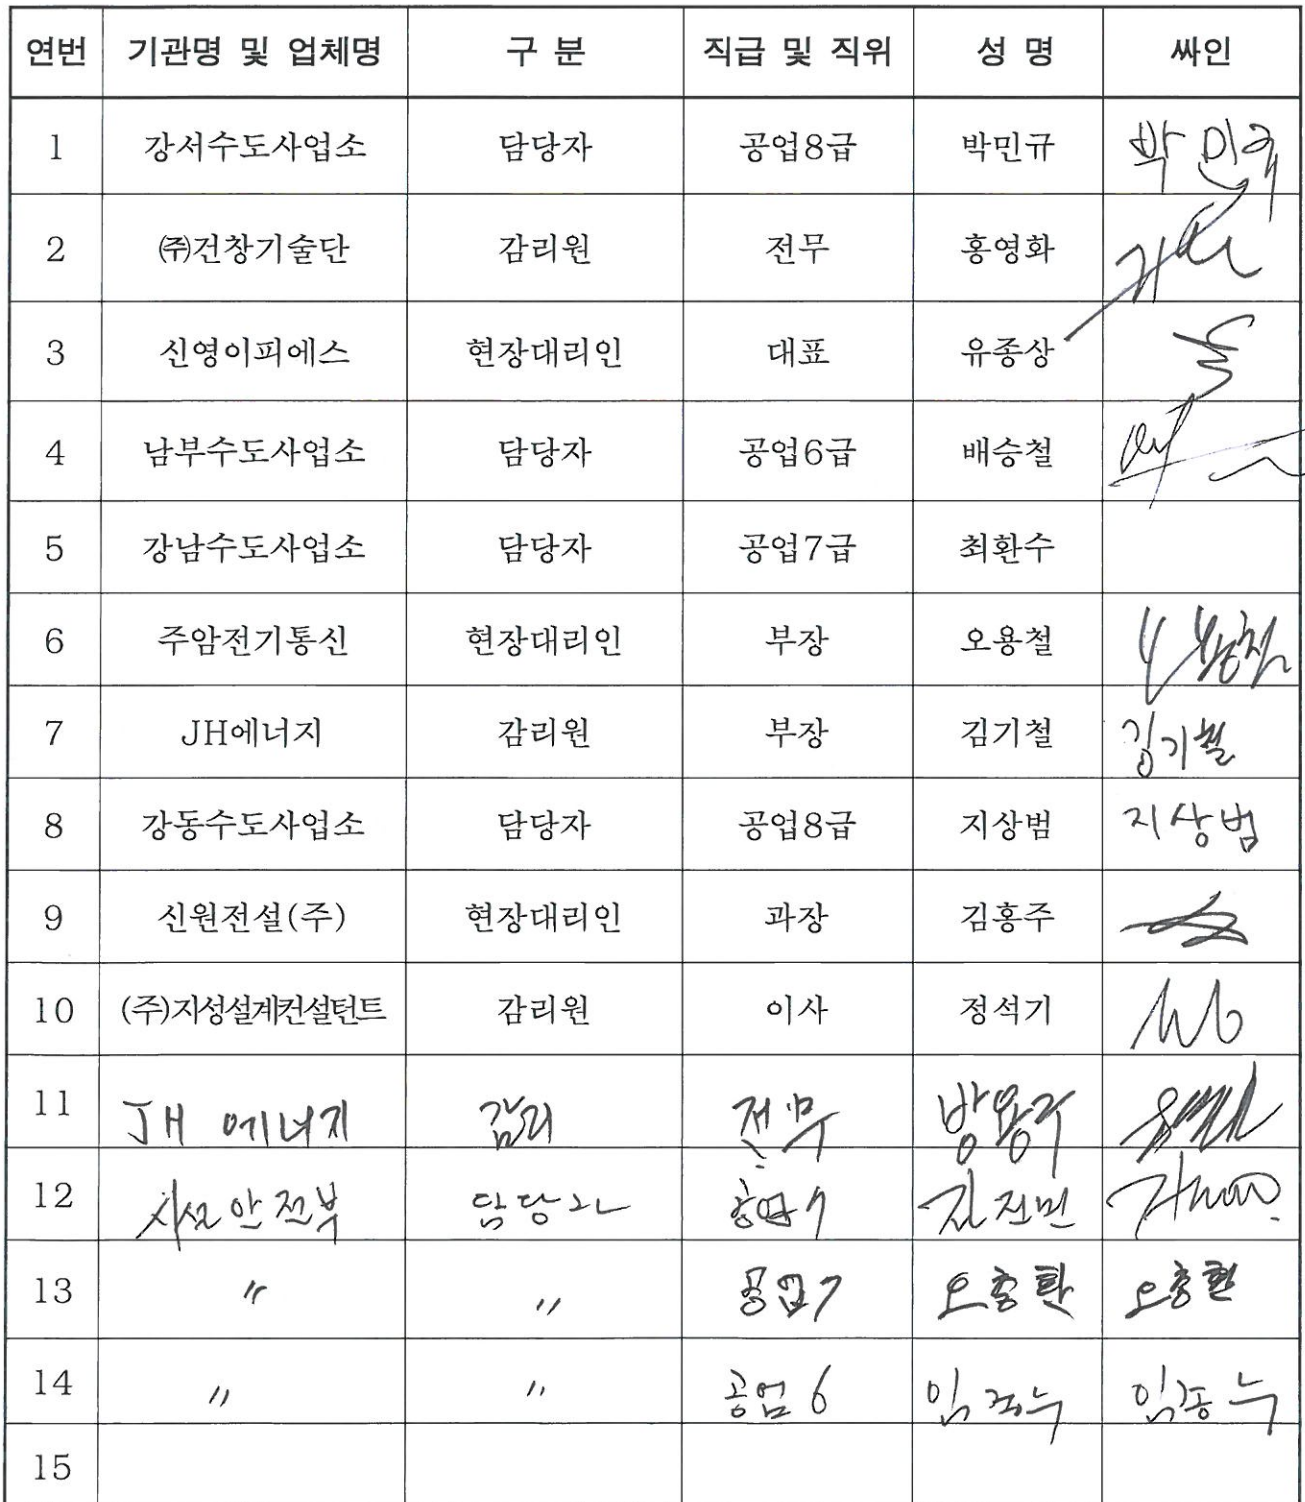 연번 기관명 및 업체명 구 분 직급 및 직위 성 명 싸인
1 강서수도사업소 담당자 공업8급 박민규 박민규
2 ㈜건창기술단 감리원 전무 홍영화
3 신영이피에스 현장대리인 대표 유종상
4 남부수도사업소 담당자 공업6급 배승철
5 강남수도사업소 담당자 공업7급 최환수
6 주암전기통신 현장대리인 부장 오용철
7 JH에너지 감리원 부장 김기철 김기철
8 강동수도사업소 담당자 공업8급 지상범 지상범
9 신원전설(주) 현장대리인 과장 김홍주
10 (주)지성설계컨설턴트 감리원 이사 정석기
11 JH 에너지 감리 전무 방용주
12 시설안전부 담당자 공업7 김진민
13 〃 〃 공업7 오충환 오충환
14 〃 〃 공업6
15